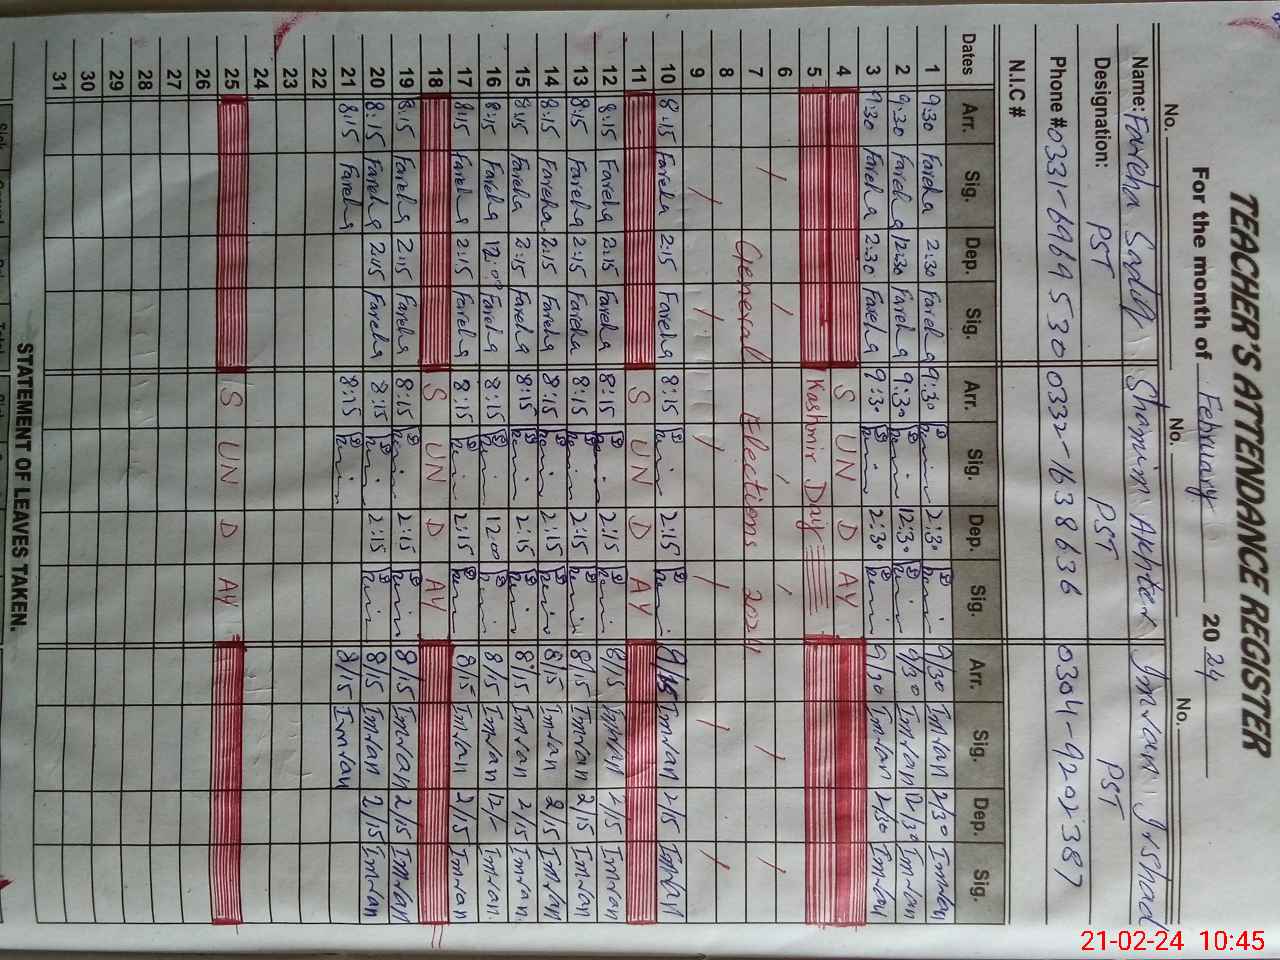 TEACHER'S ATTENDANCE REGISTER
For the month of February 2024
No. No. No.
Name: Fareha Sadiq Shamim Akhter Imran Irshad
Designation: PST PST PST
Phone # 0331-6969530 0332-1638636 0304-9202387
N.I.C #
Dates Arr. Sig. Dep. Sig. Arr. Sig. Dep. Sig. Arr. Sig. Dep. Sig.
1 9:30 Fareha 2:30 Fareha 9:30 2:30 9/30 Imran 2/30 Imran
2 9:30 Fareha 12:30 Fareha 9:30 12:30 9/30 Imran 12/30 Imran
3 9:30 Fareha 2:30 Fareha 9:30 2:30 9/30 Imran 2/30 Imran
4 S UN D AY
5 Kashmir Day
6
7 General Elections 2024
8
9
10 8:15 Fareha 2:15 Fareha 8:15 2:15 Imran 2/15 Imran
11 S UN D AY
12 8:15 Fareha 2:15 Fareha 8:15 2:15 8/15 Imran 2/15 Imran
13 8:15 Fareha 2:15 Fareha 8:15 2:15 8/15 Imran 2/15 Imran
14 8:15 Fareha 2:15 Fareha 8:15 2:15 8/15 Imran 2/15 Imran
15 8:15 Fareha 2:15 Fareha 8:15 2:15 8/15 Imran 2/15 Imran
16 8:15 Fareha 12:00 Fareha 8:15 12:00 8/15 Imran 12/- Imran
17 8:15 Fareha 2:15 Fareha 8:15 2:15 8/15 Imran 2/15 Imran
18 S UN D AY
19 8:15 Fareha 2:15 Fareha 8:15 2:15 8/15 Imran 2/15 Imran
20 8:15 Fareha 2:15 Fareha 8:15 2:15 8/15 Imran 2/15 Imran
21 8:15 Fareha 8:15 8/15 Imran
22
23
24
25 S UN D AY
26
27
28
29
30
31
STATEMENT OF LEAVES TAKEN.
21-02-24 10:45